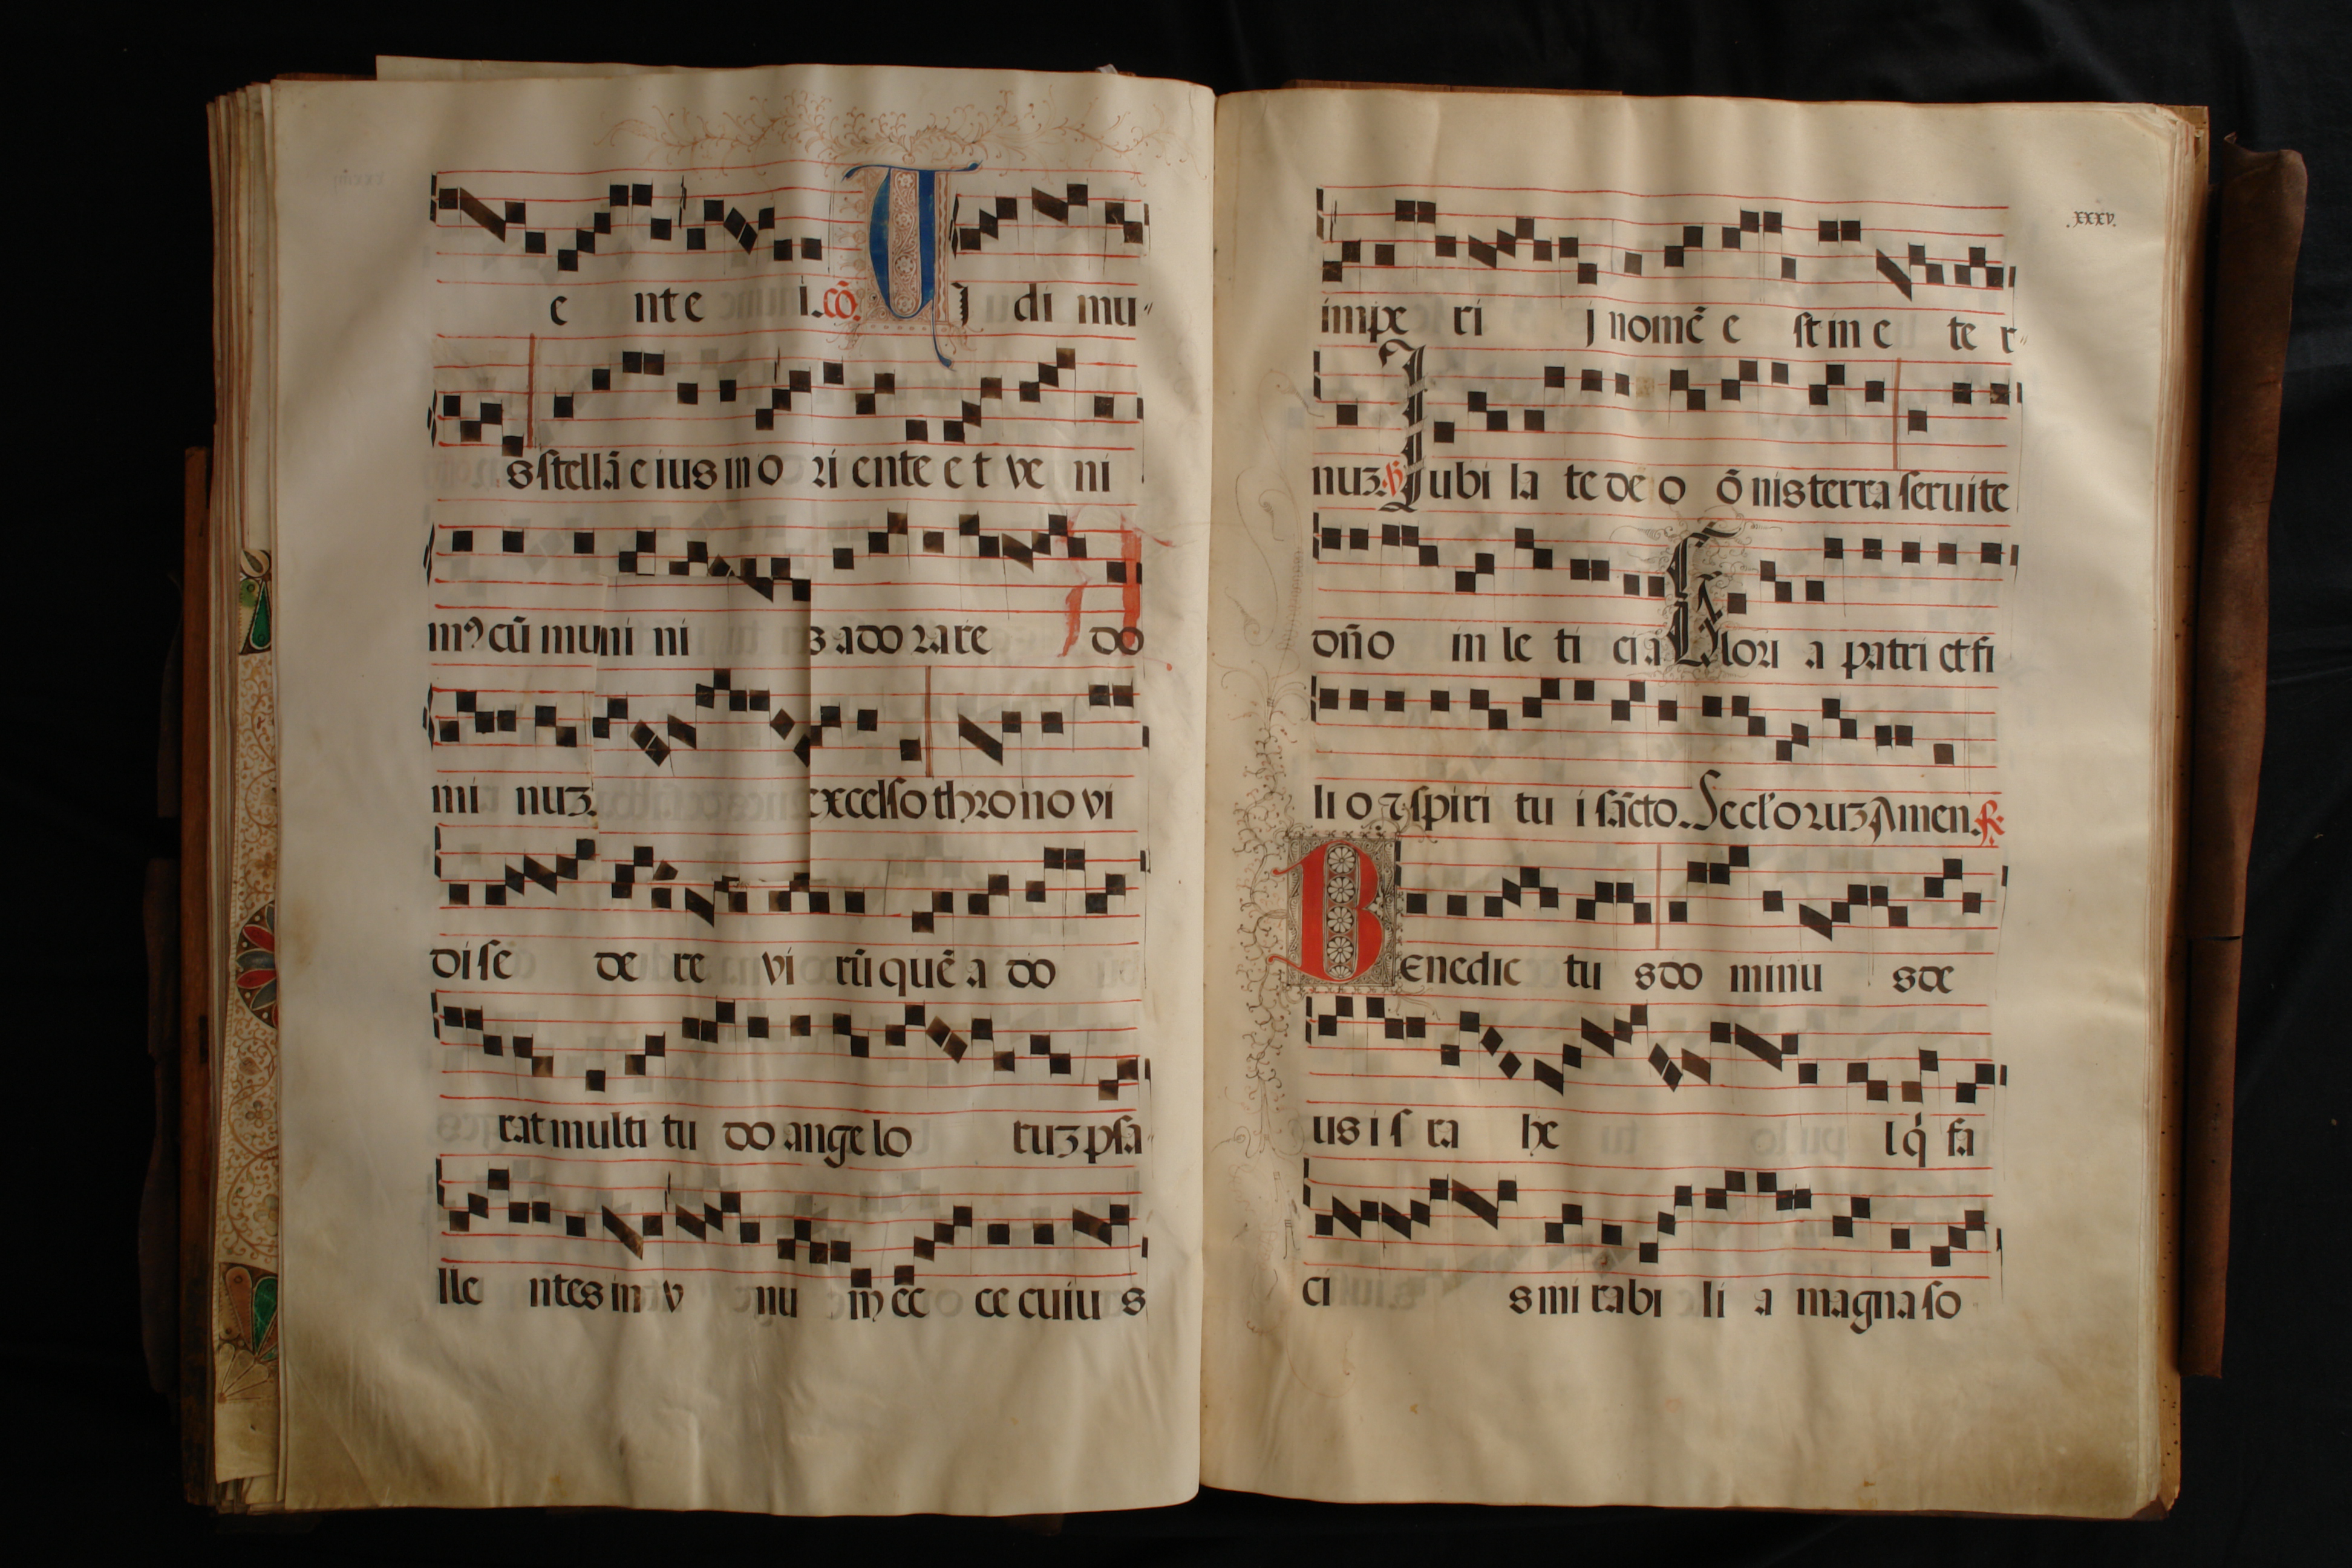 e nte i. cō. VI di mu
s stellā eius in o ri ente et ve ni
mꝰ cū muni ni s ado rare do
mi nuz. excelso throno vi
di se de re vi rū quē a do
rat multi tu do ange lo ruz psa
lle ntes in v nu m ec ce cuiu s
.xxxv.
impe ri j nomē e st in e te r
nuz. Jubi la te de o ō nis terra seruite
dn̄o in le ti ci a Glori a patri et fi
li o ⁊ spiri tu i sācto. Secl'oruz Amen. ℟.
Benedic tu s do minu s de
us i s ra he l q̇ fa
ci s mi rabi li a magna so